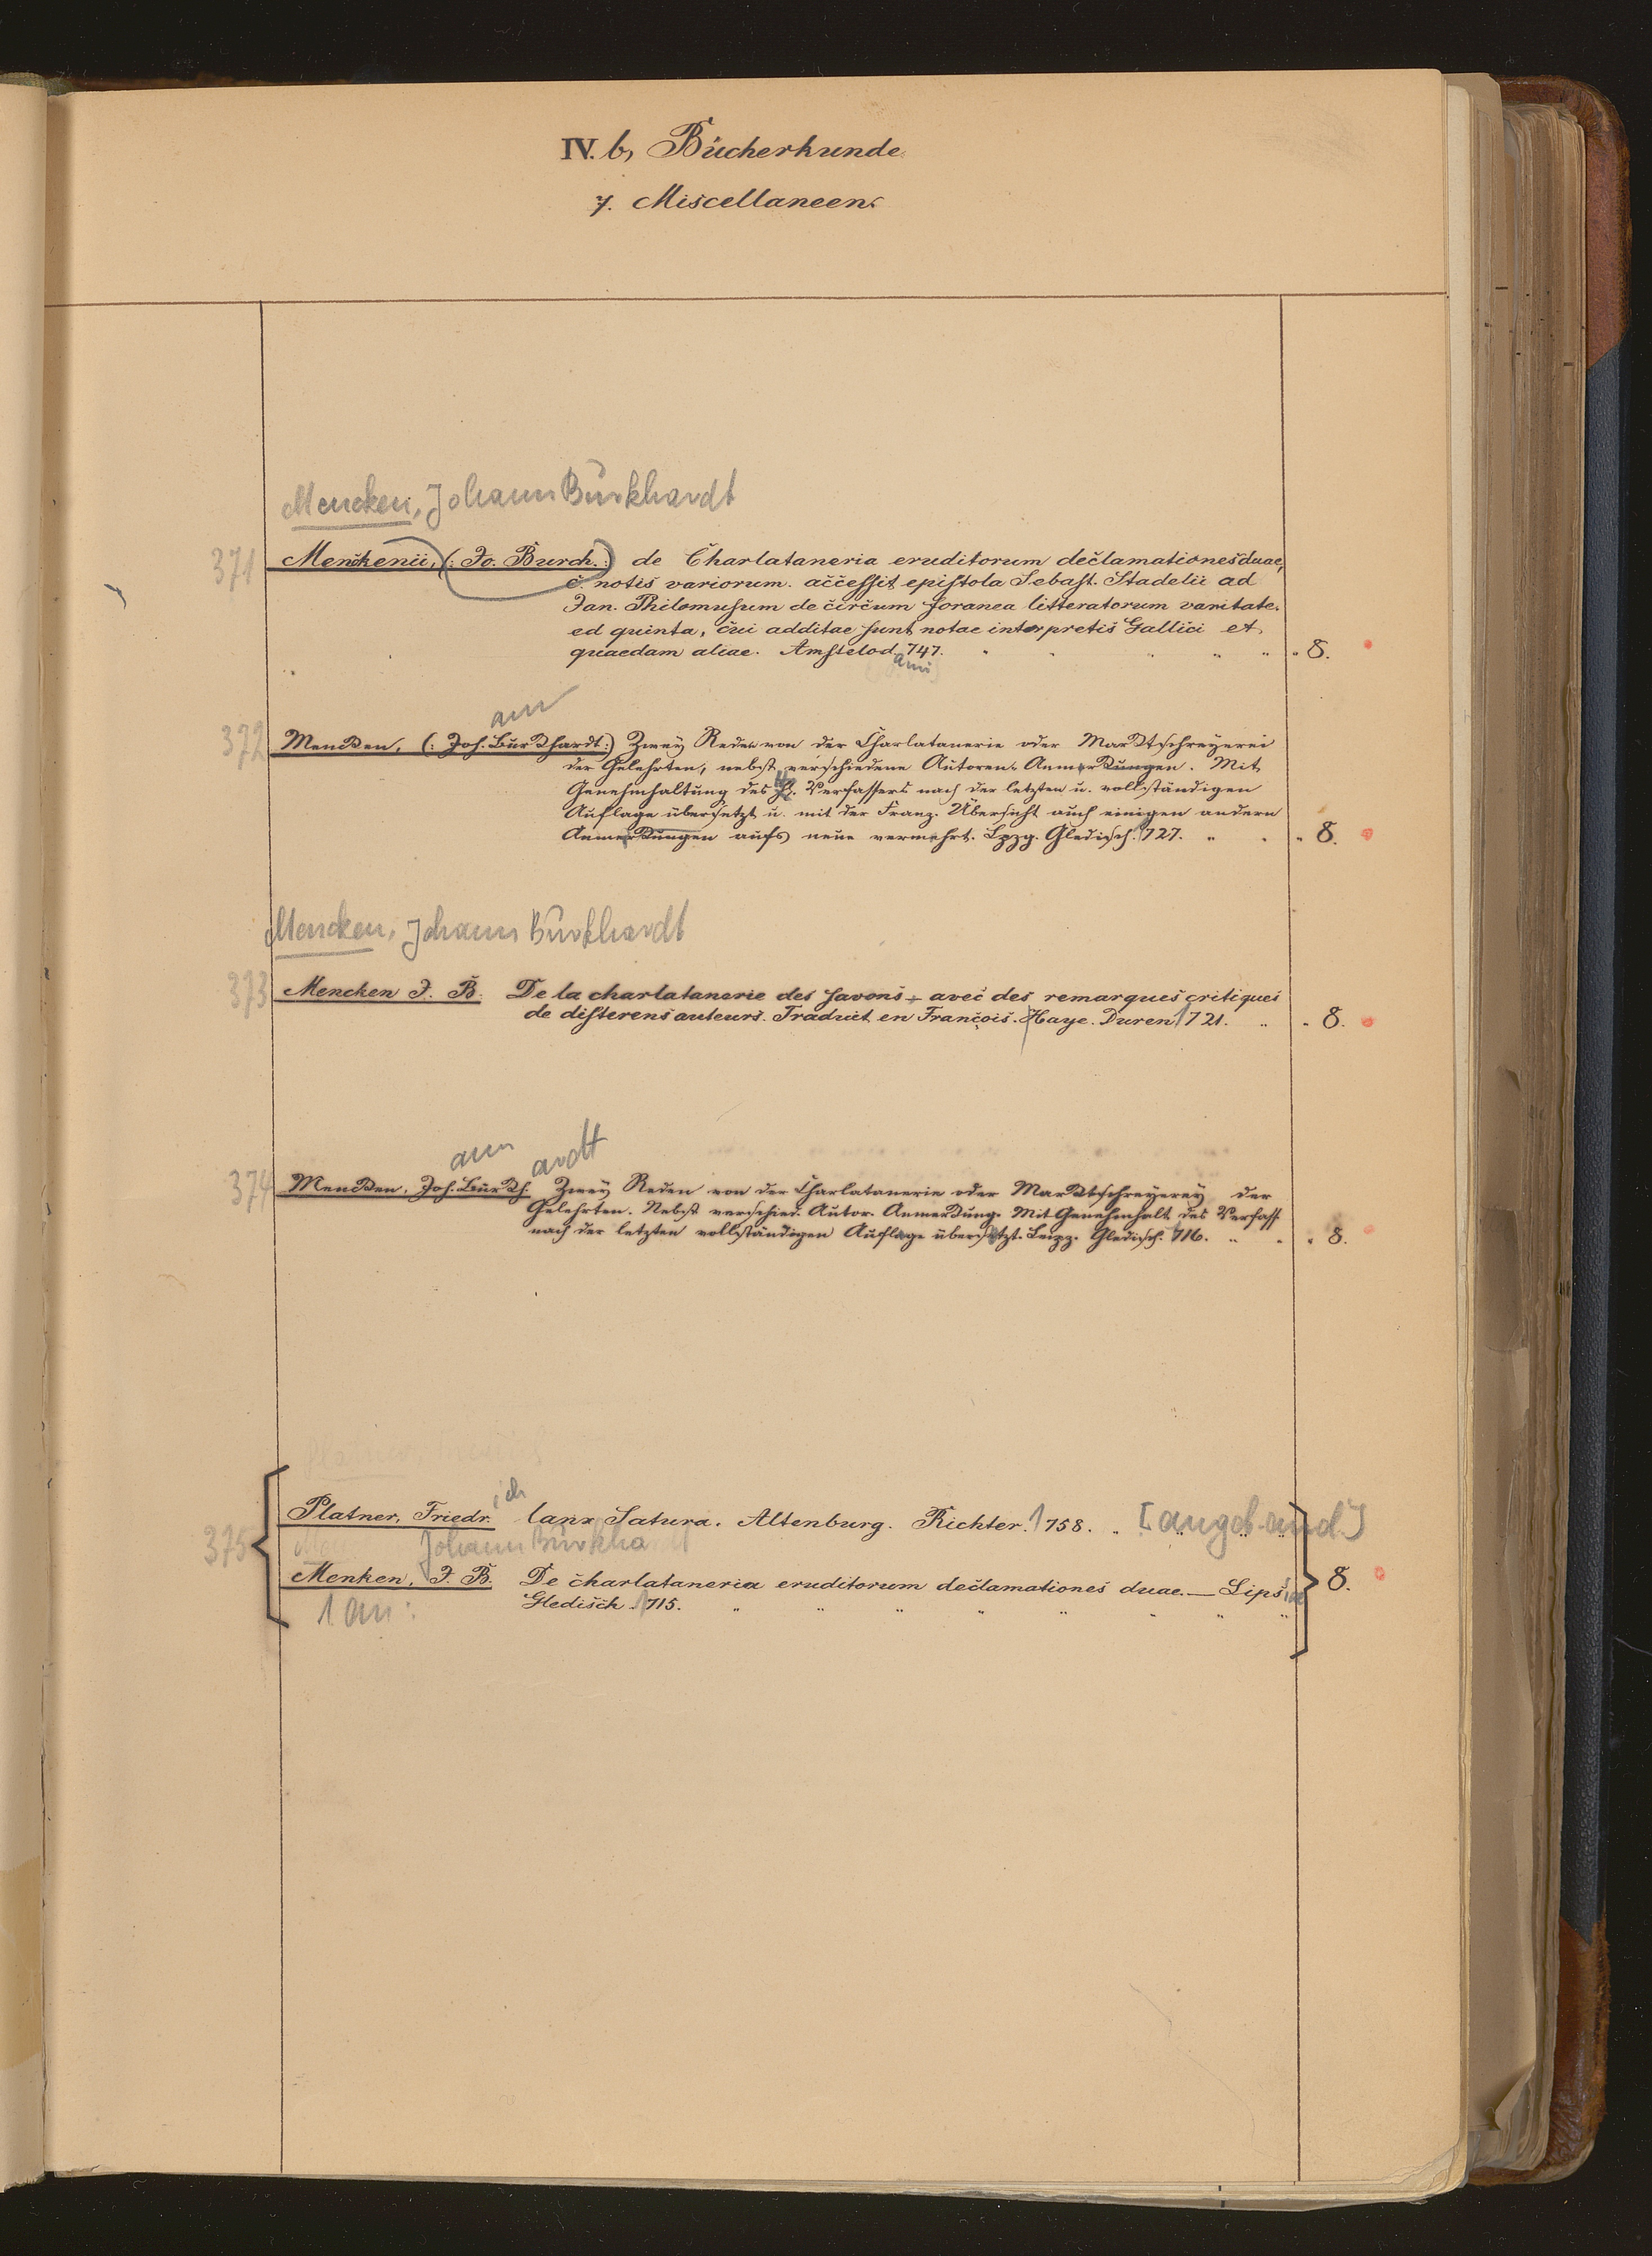 IV. b, Bücherkunde
7. Miscellaneen.
Mencken, Johann Burkhardt
371 Menckenii, (: Jo. Burch. :) de Charlataneria eruditorum declamationes duae,
c. notis variorum. accessit epistola Sebast. Stadelii ad
Jan. Philomusum de circum foranea litteratorum vanitate.
ed quinta, cui additae sunt notae interpretis Gallici et
quaedam aliae. Amstelod. 747. " " " " " " 8.
ami
ann
372 Mencken, (: Joh. Burkhardt :) Zwey Reden von der Charlatanerie oder Marktschreyerei
der Gelehrten, nebst verschiedene Autoren Anmerkungen. Mit
Genehmhaltung des H. Verfassers nach der letzten u. vollständigen
Auflage übersetzt u. mit der Franz. Übersicht auch einigen andern
Anmerkungen aufs neue vermehrt. Lpzg. Gledisch. 1727. " " " 8.
Mencken, Johann Burkhardt
373 Mencken J. B. De la charlatanerie des savons + avec des remarques critiques
de differens auteurs. Traduit en François. Haye. Duren 1721. " " 8.
ann ardt
374 Mencken, Joh. Burkh. Zwey Reden von der Charlatanerie oder Marktschreyerey der
Gelehrten. Nebst verschied. Autor. Anmerkung. Mit Genehmhalt des Verfass
nach der letzten vollständigen Auflage übersetzt. Leipz. Gledisch. 1716. " " " 8.
ich
Platner, Friedr. lanx Satura. Altenburg. Richter. 1758. " [angeb. and.]
375 Johann Burkhardt
Menken, J. B. De charlataneria eruditorum declamationes duae. — Lipsiae 8.
1 an: Gledisch. 1715. " " " " " " " "